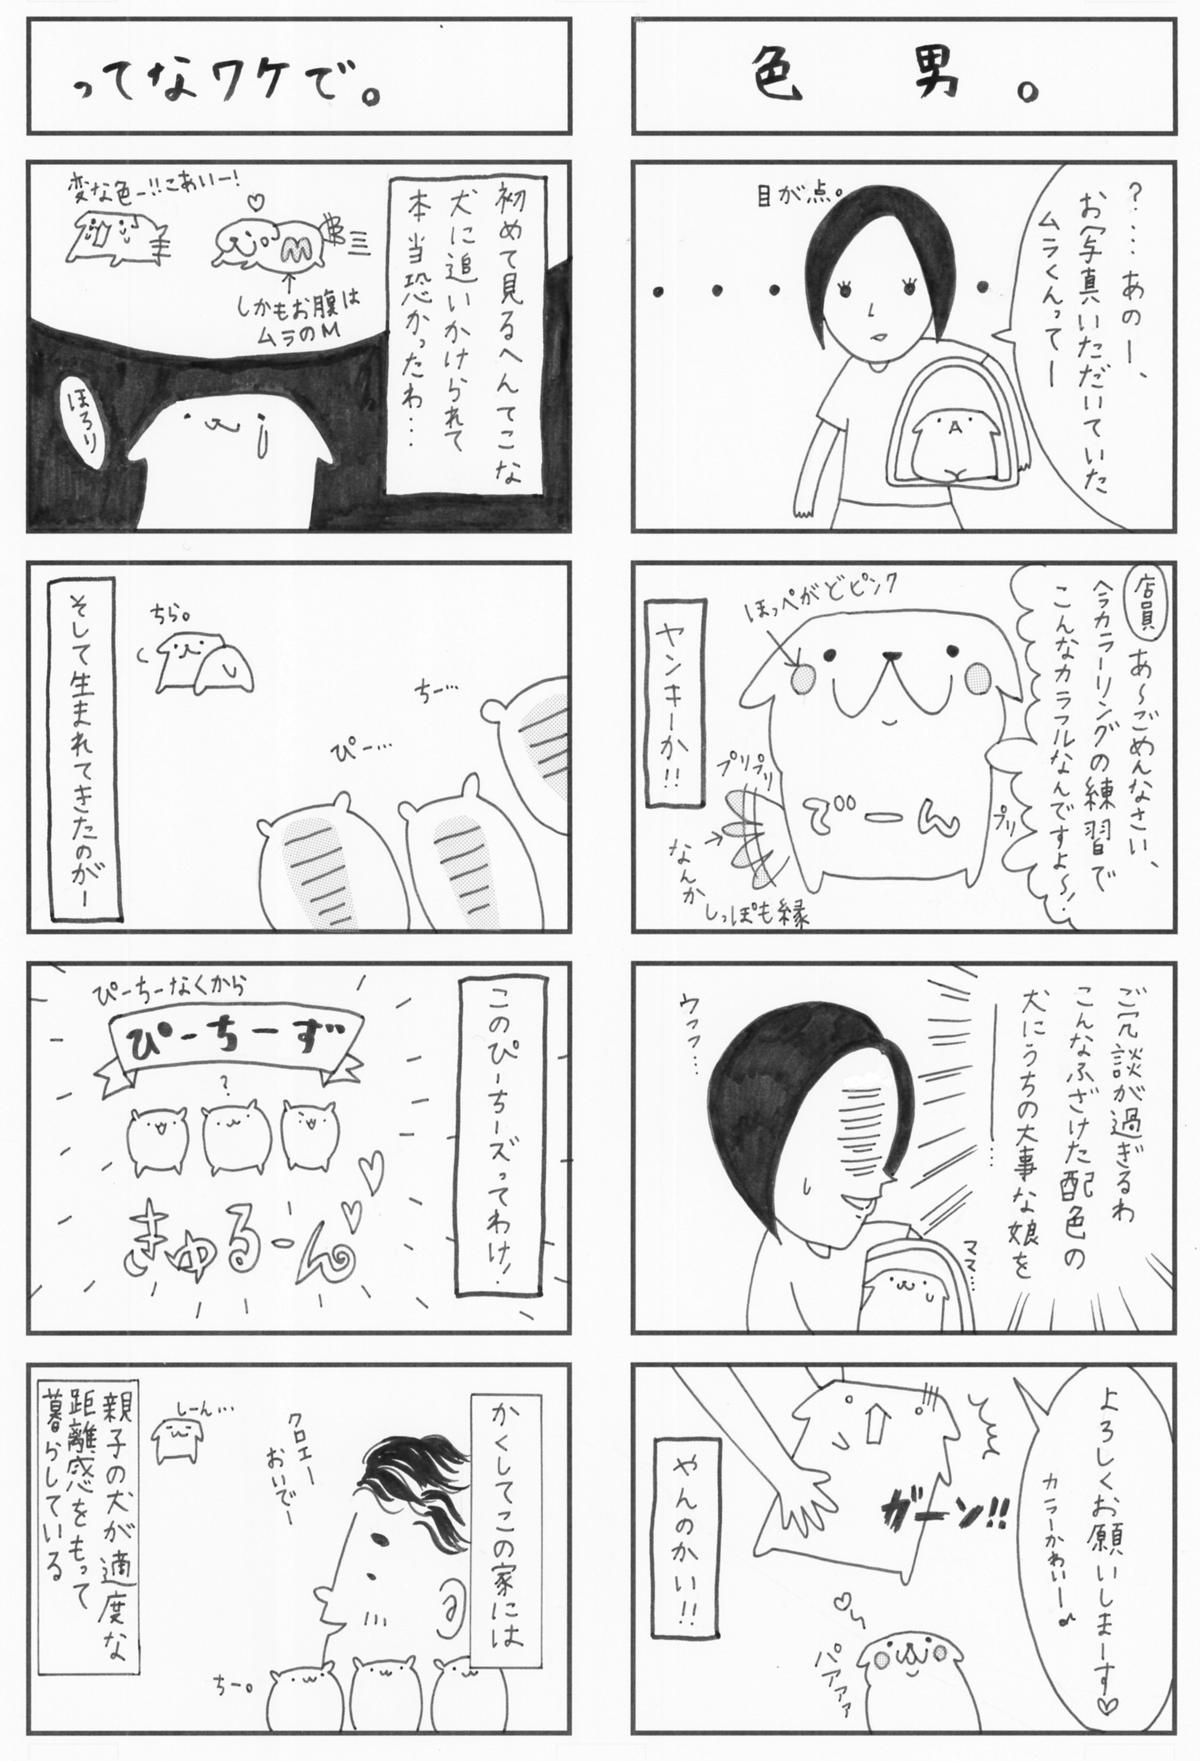 色男。
?…あのー、
お写真いただいていた
ムラくんってー
目が点。
店員
あ〜ごめんなさい、
今カラーリングの練習で
こんなカラフルなんですよ〜!
ほっぺがどピンク
ヤンキーか!!
でーん
プリプリ
プリ
なんか
しっぽも縁
ご冗談が過ぎるわ
こんなふざけた配色の
犬にうちの大事な娘を
――…
ウフフ…
ママ…
よろしくお願いしまーす♡
カラーかわいー♪
ガーン!!
やんのかい!!
パアアア
ってなワケで。
初めて見るへんてこな
犬に追いかけられて
本当恐かったわ…
変な色ー!!こあいー!
M
しかもお腹は
ムラのM
ほろり
そして生まれてきたのがー
ちら。
ちー…
ぴー…
このぴーちーズってわけ!
ぴーちーなくから
ぴーちーず
?
きゅるーん
かくしてこの家には
クロエー
おいでー
しーん…
ちー。
親子の犬が適度な
距離感をもって
暮らしている